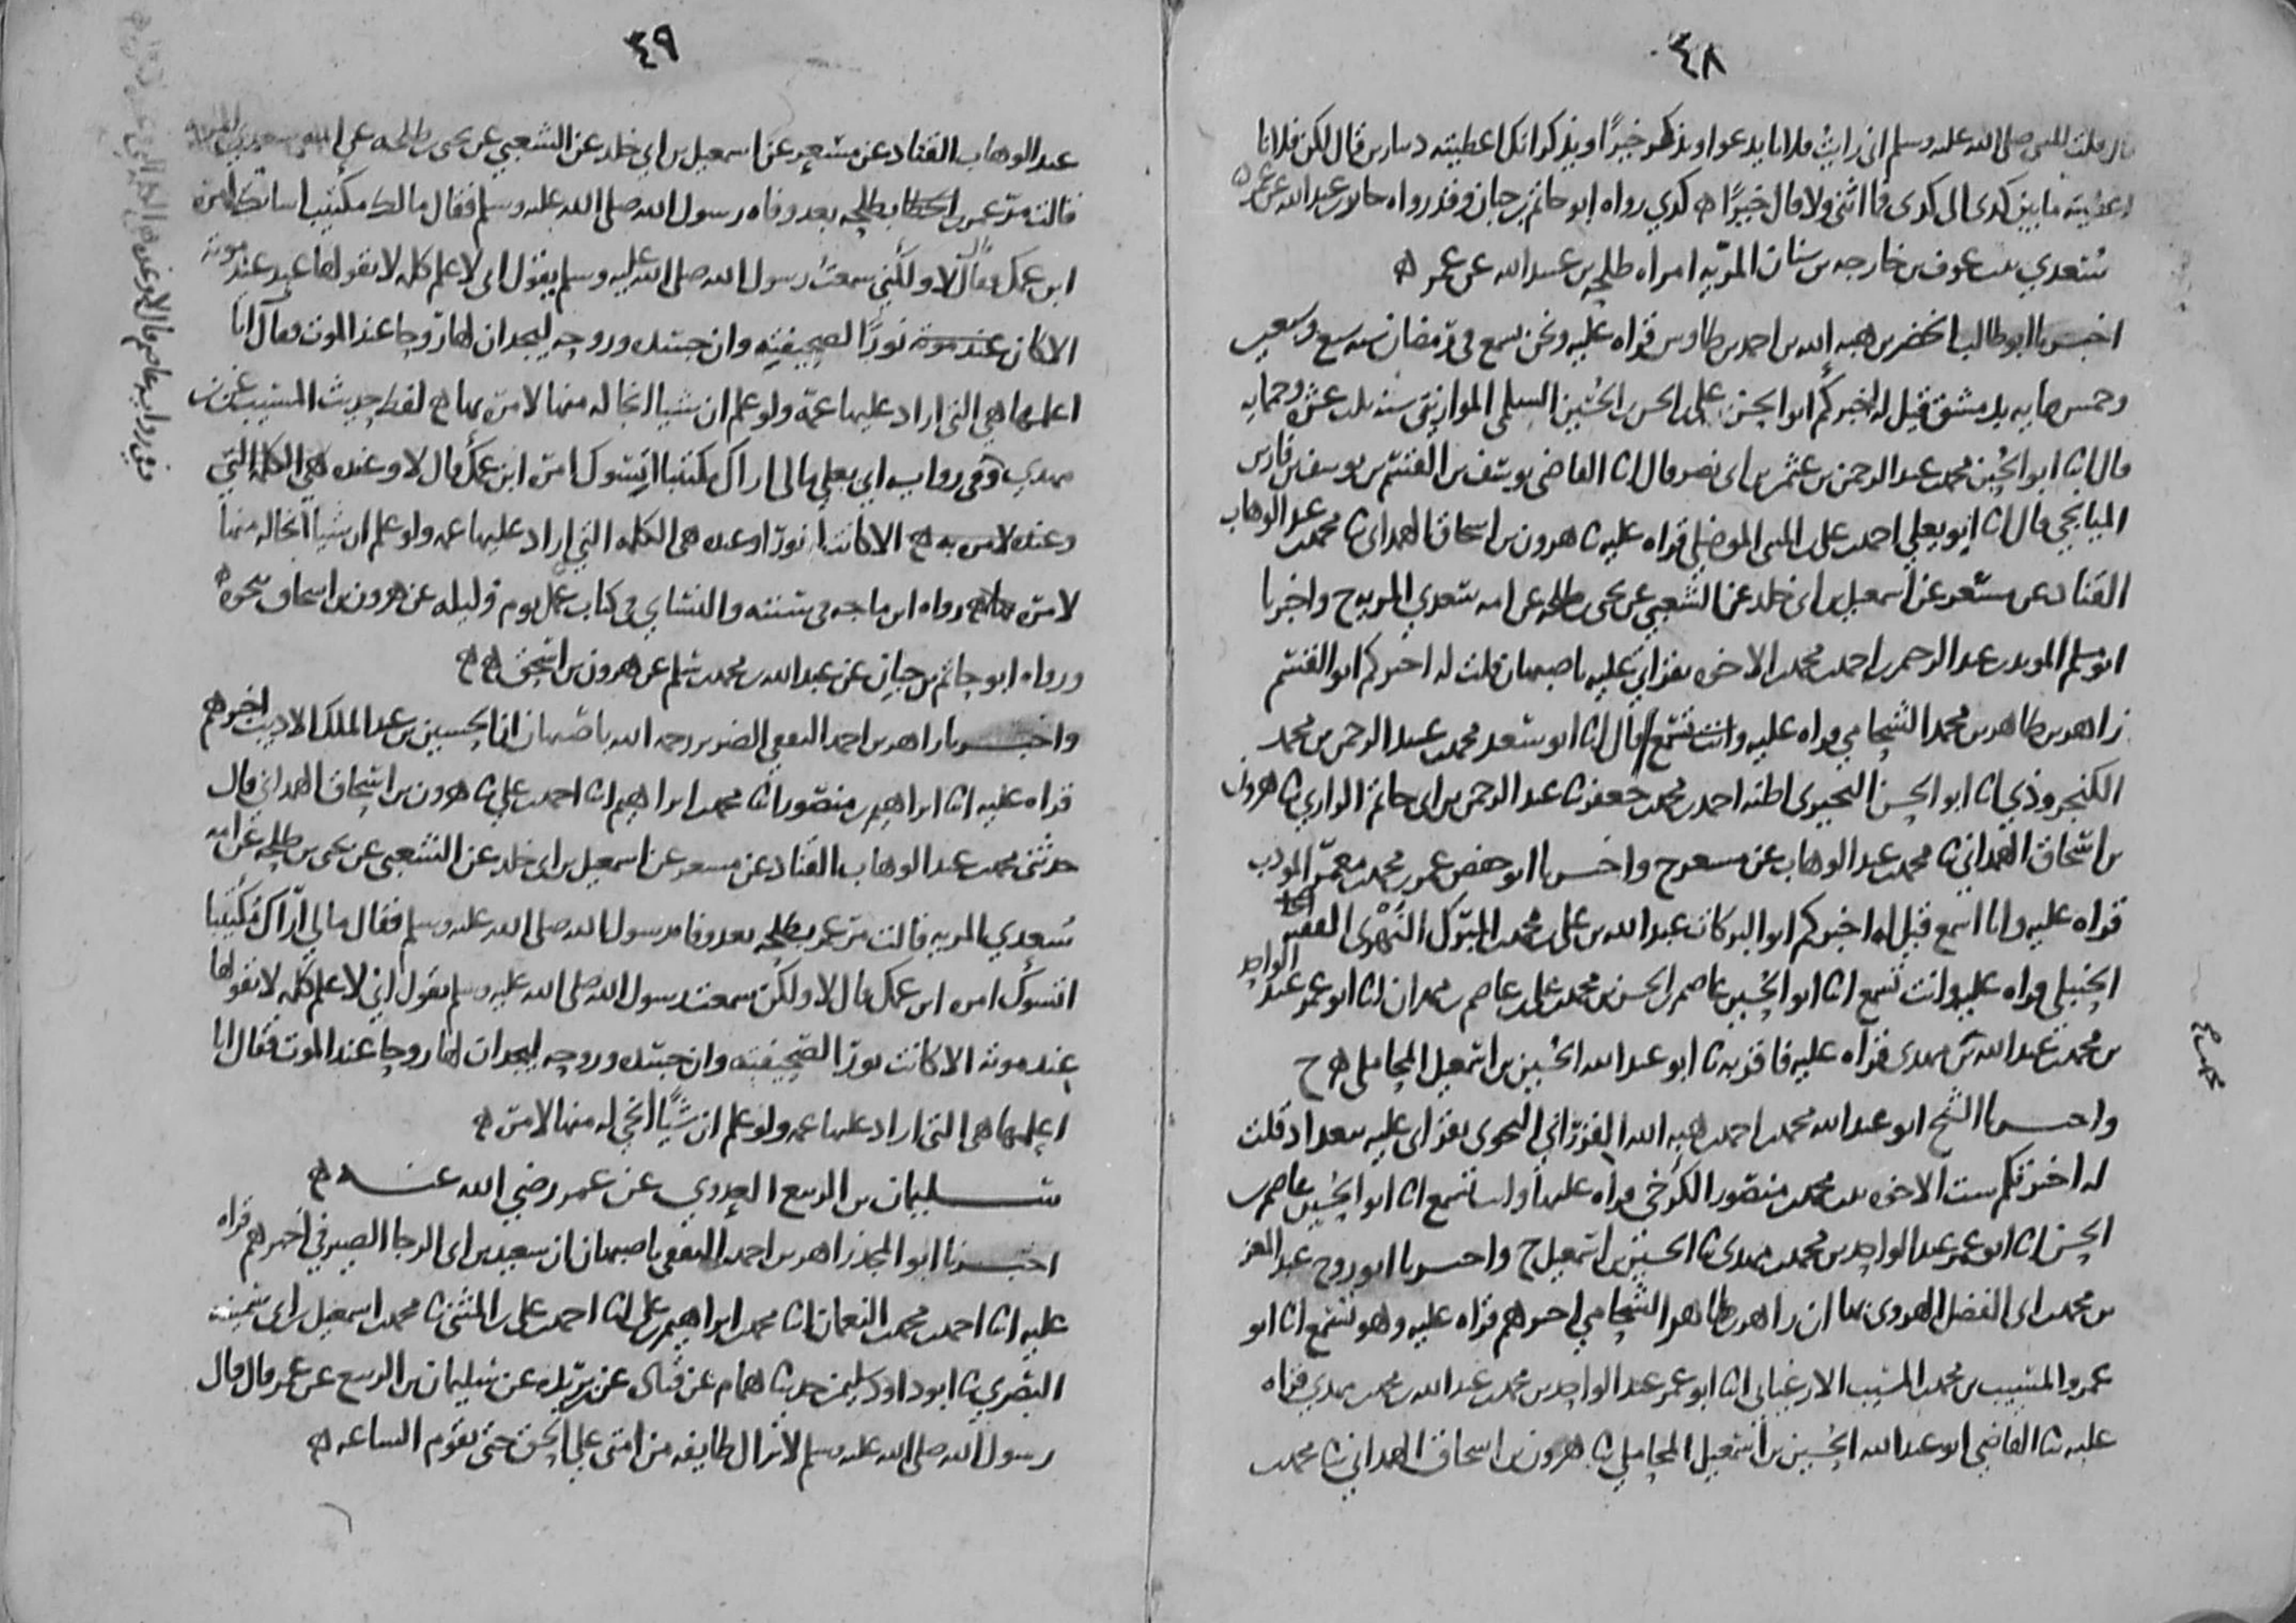 ٤٨
قال قلت للنبي صلى الله عليه وسلم اني رايت فلانا يدعو او يذكر خيرا ويذكر انك اعطيته دينارين قال لكن فلانا
اعطيته ما بين كدى الى كدى فما اثنى ولا قال خيرا ه كدي رواه ابو حاتم بن حبان وقد رواه عبد الله عن عمر ه
سعدي بنت عوف بن خارجه بن سنان المريه امراه طلحه بن عبيد الله عن عمر ه
اخبرنا ابو طالب الخضر بن هبه الله بن احمد بن طاوس قراه عليه ونحن نسمع في رمضان سنه سبع وسبعين
وخمس مايه بدمشق قيل له اخبركم ابو الحسن علي بن الحسن بن الحسين السلمي الموازيني سنه ثلث عشر وخمسمايه
قال انا ابو الحسين محمد بن عبد الرحمن بن عثمن بن ابي نصر قال انا القاضي يوسف بن القسم بن يوسف بن فارس
الميانجي قال انا ابو يعلى احمد بن علي بن المثنى الموصلي قراه عليه ثنا هرون بن اسحاق الهمداني ثنا محمد بن عبد الوهاب
القناد عن مسعر عن اسمعيل بن ابي خلد عن الشعبي عن يحيى بن طلحه عن امه سعدي المريه ح واخبرنا
ابو مسلم المويد بن عبد الرحيم بن احمد بن محمد بن الاخوه بقراتي عليه باصبهان قلت له اخبركم ابو القسم
زاهر بن طاهر بن محمد الشحامي قراه عليه وانت تسمع قال انا ابو سعد محمد بن عبد الرحمن بن محمد
الكنجروذي انا ابو الحسن البحيري اظنه احمد بن محمد بن جعفر ثنا عبد الرحمن بن ابي حاتم الرازي ثنا هرون
بن اسحاق الهمداني ثنا محمد بن عبد الوهاب عن مسعر ح واخبرنا ابو حفص عمر بن محمد بن معمر المودب
قراه عليه وانا اسمع قيل له اخبركم ابو البركات عبد الله بن علي بن محمد المبرك النهري الفقيه
الحنبلي قراه عليه وانت تسمع انا ابو الحسين عاصم بن الحسن بن محمد بن علي بن عاصم بن مهران انا ابو عمر عبد الواحد
بن محمد بن عبد الله بن مهدي قراه عليه فاقر به ثنا ابو عبد الله الحسين بن اسمعيل المحاملي ه ح
واخبرنا الشيخ ابو عبد الله محمد بن احمد بن هبه الله الفزراني النحوي بقراتي عليه ببغداد قلت
له اخبرتكم ست الاخوه بنت محمد بن منصور الكرخي قراه عليها وانت تسمع انا ابو الحسين عاصم بن
الحسن انا ابو عمر عبد الواحد بن محمد بن مهدي ثنا الحسين بن اسمعيل ح واخبرنا ابو روح عبد المعز
بن محمد بن ابي الفضل الهروي بها ان زاهر بن طاهر الشحامي اخبرهم قراه عليه وهو يسمع انا ابو
عمرو المسيب بن محمد بن المسيب الارغياني انا ابو عمر عبد الواحد بن محمد بن عبد الله بن محمد بن مهدي قراه
عليه ثنا القاضي ابو عبد الله الحسين بن اسمعيل المحاملي ثنا هرون بن اسحاق الهمداني ثنا محمد بن
٤٩
عبد الوهاب القناد عن مسعر عن اسمعيل بن ابي خلد عن الشعبي عن يحيى بن طلحه عن امه سعدي المريه
قالت مر عمر بن الخطاب بطلحه بعد وفاه رسول الله صلى الله عليه وسلم فقال مالك مكتيبا اساتك امره
ابن عمك قال لا ولكني سمعت رسول الله صلى الله عليه وسلم يقول اني لاعلم كلمه لا يقولها عبد عند موته
الا كان نورا لصحيفته وان جسده وروحه ليجدان لها روحا عند الموت فقال انا
اعلمها هي التي اراد عليها عمه ولو علم ان شيا انجا له منها لامره بها ه لفظ حديث المسيب عن بن
مهدي وفي روايه ابي يعلى مالي اراك مكتيبا ايسوك امره ابن عمك قال لا وعنده هي الكلمه التي
وعنده لامر به ه الا كانت نورا وعنده هي الكلمه التي اراد عليها عمه ولو علم ان شيا انجا له منها
لامره بها ه رواه ابن ماجه في سننه والنسائي في كتاب عمل يوم وليله عن هرون بن اسحاق نحوه ه
ورواه ابو حاتم بن حبان عن عبد الله بن محمد بن سلم عن هرون بن اسحق ه ه
واخبرنا زاهر بن احمد الثقفي الضرير رحمه الله باصبهان انا الحسين بن عبد الملك الاديب اخبرهم
قراه عليه انا ابراهيم بن منصور انا محمد بن ابراهيم انا احمد بن علي ثنا هرون بن اسحاق الهمداني قال
حدثني محمد بن عبد الوهاب القناد عن مسعر عن اسمعيل بن ابي خلد عن الشعبي عن يحيى بن طلحه عن امه
سعدي المريه قالت مر عمر بطلحه بعد وفاه رسول الله صلى الله عليه وسلم فقال مالي اراك مكتيبا
اتسوك امره ابن عمك قال لا ولكن سمعت رسول الله صلى الله عليه وسلم يقول اني لاعلم كلمه لا يقولها
عند موته الا كانت نورا لصحيفته وان جسده وروحه ليجدان لها روحا عند الموت فقال انا
اعلمها هي التي اراد عليها عمه ولو علم ان شيا انجى له منها لامره ه
سليمان بن الربيع العدوي عن عمر رضي الله عنه ه
اخبرنا ابو المجد زاهر بن احمد الثقفي باصبهان ان سعيد بن ابي الرجا الصيرفي اخبرهم قراه
عليه انا احمد بن محمد بن النعمان انا محمد بن ابراهيم بن علي انا احمد بن علي بن المثنى ثنا محمد بن اسمعيل بن ابي سمينه
البصري ثنا ابو داود سليمن حدثنا همام عن قتاده عن بن بريده عن سليمان بن الربيع عن عمر قال قال
رسول الله صلى الله عليه وسلم لا تزال طايفه من امتي على الحق حتى تقوم الساعه ه